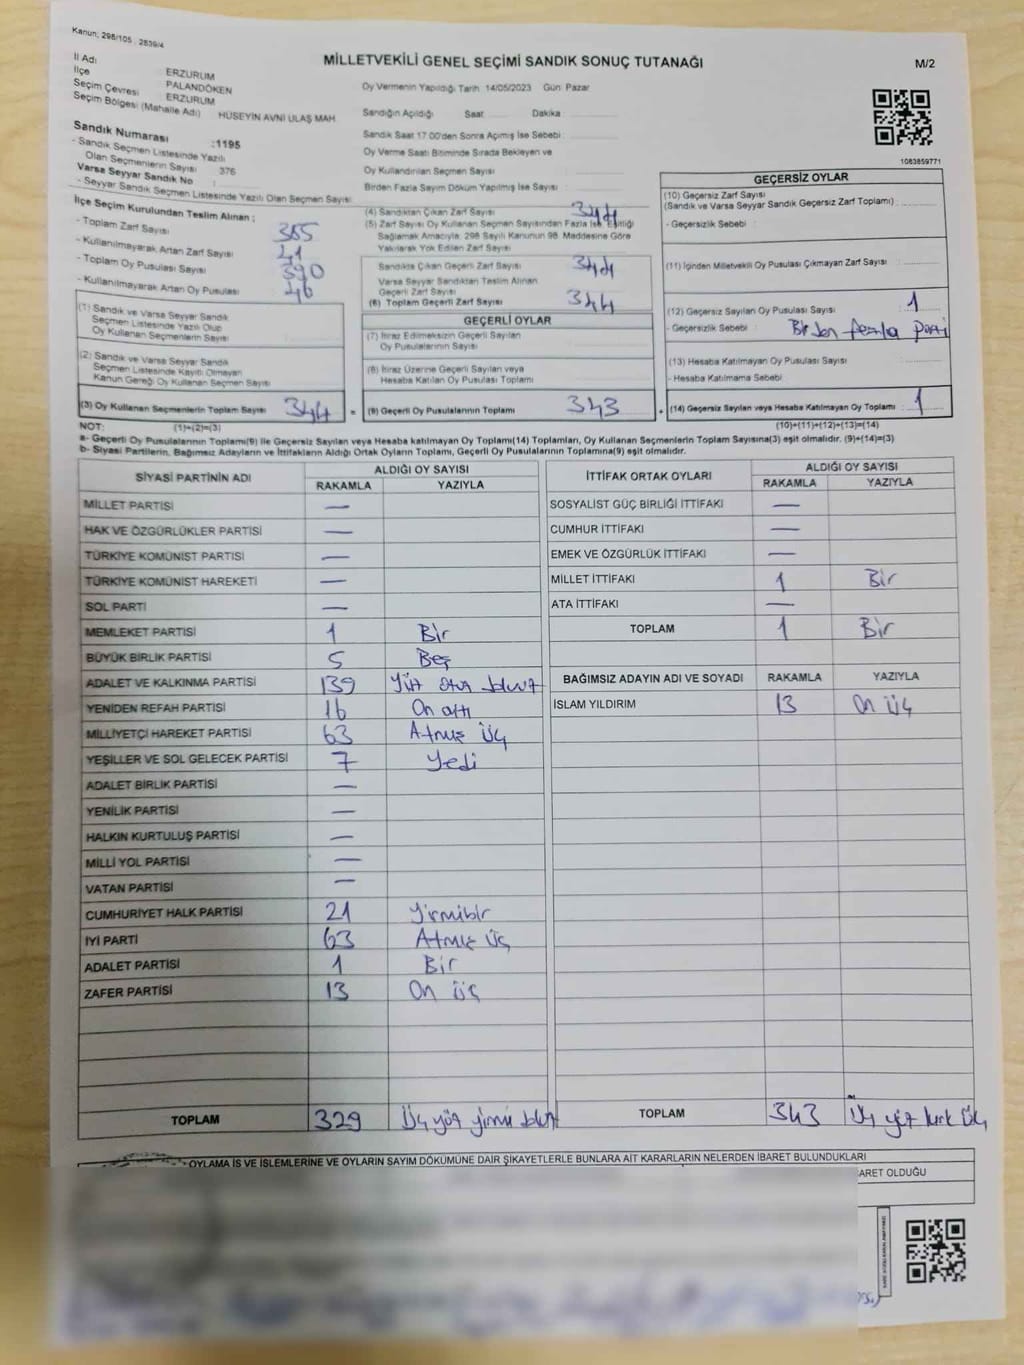 Kanun; 298/105 , 2839/4
MİLLETVEKİLİ GENEL SEÇİMİ SANDIK SONUÇ TUTANAĞI
M/2
İl Adı : ERZURUM
İlçe PALANDÖKEN
Seçim Çevresi ERZURUM
Seçim Bölgesi (Mahalle Adı) HÜSEYİN AVNİ ULAŞ MAH.
Sandık Numarası :1195
- Sandık Seçmen Listesinde Yazılı
Olan Seçmenlerin Sayısı 376
Varsa Seyyar Sandık No
- Seyyar Sandık Seçmen Listesinde Yazılı Olan Seçmen Sayısı
İlçe Seçim Kurulundan Teslim Alınan ;
- Toplam Zarf Sayısı 385
- Kullanılmayarak Artan Zarf Sayısı 41
- Toplam Oy Pusulası Sayısı 390
- Kullanılmayarak Artan Oy Pusulası 46
(1) Sandık ve Varsa Seyyar Sandık
Seçmen Listesinde Yazılı Olup
Oy Kullanan Seçmenlerin Sayısı
(2) Sandık ve Varsa Seyyar Sandık
Seçmen Listesinde Kayıtlı Olmayan
Kanun Gereği Oy Kullanan Seçmen Sayısı
(3) Oy Kullanan Seçmenlerin Toplam Sayısı 344 =
Oy Vermenin Yapıldığı Tarih 14/05/2023 Gün Pazar
Sandığın Açıldığı Saat Dakika
Sandık Saat 17.00'den Sonra Açılmış İse Sebebi
Oy Verme Saati Bitiminde Sırada Bekleyen ve
Oy Kullandırılan Seçmen Sayısı
Birden Fazla Sayım Döküm Yapılmış İse Sayısı
(4) Sandıktan Çıkan Zarf Sayısı 344
(5) Zarf Sayısı Oy Kullanan Seçmen Sayısından Fazla İse, Eşitliği
Sağlamak Amacıyla; 298 Sayılı Kanunun 98. Maddesine Göre
Yakılarak Yok Edilen Zarf Sayısı
Sandıkta Çıkan Geçerli Zarf Sayısı 344
Varsa Seyyar Sandıktan Teslim Alınan
Geçerli Zarf Sayısı
(6) Toplam Geçerli Zarf Sayısı 344
GEÇERLİ OYLAR
(7) İtiraz Edilmeksizin Geçerli Sayılan
Oy Pusulalarının Sayısı
(8) İtiraz Üzerine Geçerli Sayılan veya
Hesaba Katılan Oy Pusulası Toplamı
(9) Geçerli Oy Pusulalarının Toplamı 343 +
1083859771
GEÇERSİZ OYLAR
(10) Geçersiz Zarf Sayısı
(Sandık ve Varsa Seyyar Sandık Geçersiz Zarf Toplamı)
- Geçersizlik Sebebi
(11) İçinden Milletvekili Oy Pusulası Çıkmayan Zarf Sayısı
(12) Geçersiz Sayılan Oy Pusulası Sayısı 1
- Geçersizlik Sebebi : Birden fazla parti
(13) Hesaba Katılmayan Oy Pusulası Sayısı
- Hesaba Katılmama Sebebi
(14) Geçersiz Sayılan veya Hesaba Katılmayan Oy Toplamı 1
NOT: (1)+(2)=(3) (10)+(11)+(12)+(13)=(14)
a- Geçerli Oy Pusulalarının Toplamı(9) ile Geçersiz Sayılan veya Hesaba katılmayan Oy Toplamı(14) Toplamları, Oy Kullanan Seçmenlerin Toplam Sayısına(3) eşit olmalıdır. (9)+(14)=(3)
b- Siyasi Partilerin, Bağımsız Adayların ve İttifakların Aldığı Ortak Oyların Toplamı, Geçerli Oy Pusulalarının Toplamına(9) eşit olmalıdır.
SİYASİ PARTİNİN ADI ALDIĞI OY SAYISI
RAKAMLA YAZIYLA
MİLLET PARTİSİ —
HAK VE ÖZGÜRLÜKLER PARTİSİ —
TÜRKİYE KOMÜNİST PARTİSİ —
TÜRKİYE KOMÜNİST HAREKETİ —
SOL PARTİ —
MEMLEKET PARTİSİ 1 Bir
BÜYÜK BİRLİK PARTİSİ 5 Beş
ADALET VE KALKINMA PARTİSİ 139 Yüz otuz dokuz
YENİDEN REFAH PARTİSİ 16 On altı
MİLLİYETÇİ HAREKET PARTİSİ 63 Atmış Üç
YEŞİLLER VE SOL GELECEK PARTİSİ 7 Yedi
ADALET BİRLİK PARTİSİ —
YENİLİK PARTİSİ —
HALKIN KURTULUŞ PARTİSİ —
MİLLİ YOL PARTİSİ —
VATAN PARTİSİ —
CUMHURİYET HALK PARTİSİ 21 Yirmibir
İYİ PARTİ 63 Atmış Üç
ADALET PARTİSİ 1 Bir
ZAFER PARTİSİ 13 On üç
TOPLAM 329 Üç yüz yirmi dokuz
İTTİFAK ORTAK OYLARI ALDIĞI OY SAYISI
RAKAMLA YAZIYLA
SOSYALİST GÜÇ BİRLİĞİ İTTİFAKI —
CUMHUR İTTİFAKI —
EMEK VE ÖZGÜRLÜK İTTİFAKI —
MİLLET İTTİFAKI 1 Bir
ATA İTTİFAKI —
TOPLAM 1 Bir
BAĞIMSIZ ADAYIN ADI VE SOYADI RAKAMLA YAZIYLA
İSLAM YILDIRIM 13 On Üç
TOPLAM 343 Üç yüz kırk Üç
OYLAMA İŞ VE İŞLEMLERİNE VE OYLARIN SAYIM DÖKÜMÜNE DAİR ŞİKAYETLERLE BUNLARA AİT KARARLARIN NELERDEN İBARET BULUNDUKLARI
ARET OLDUĞU